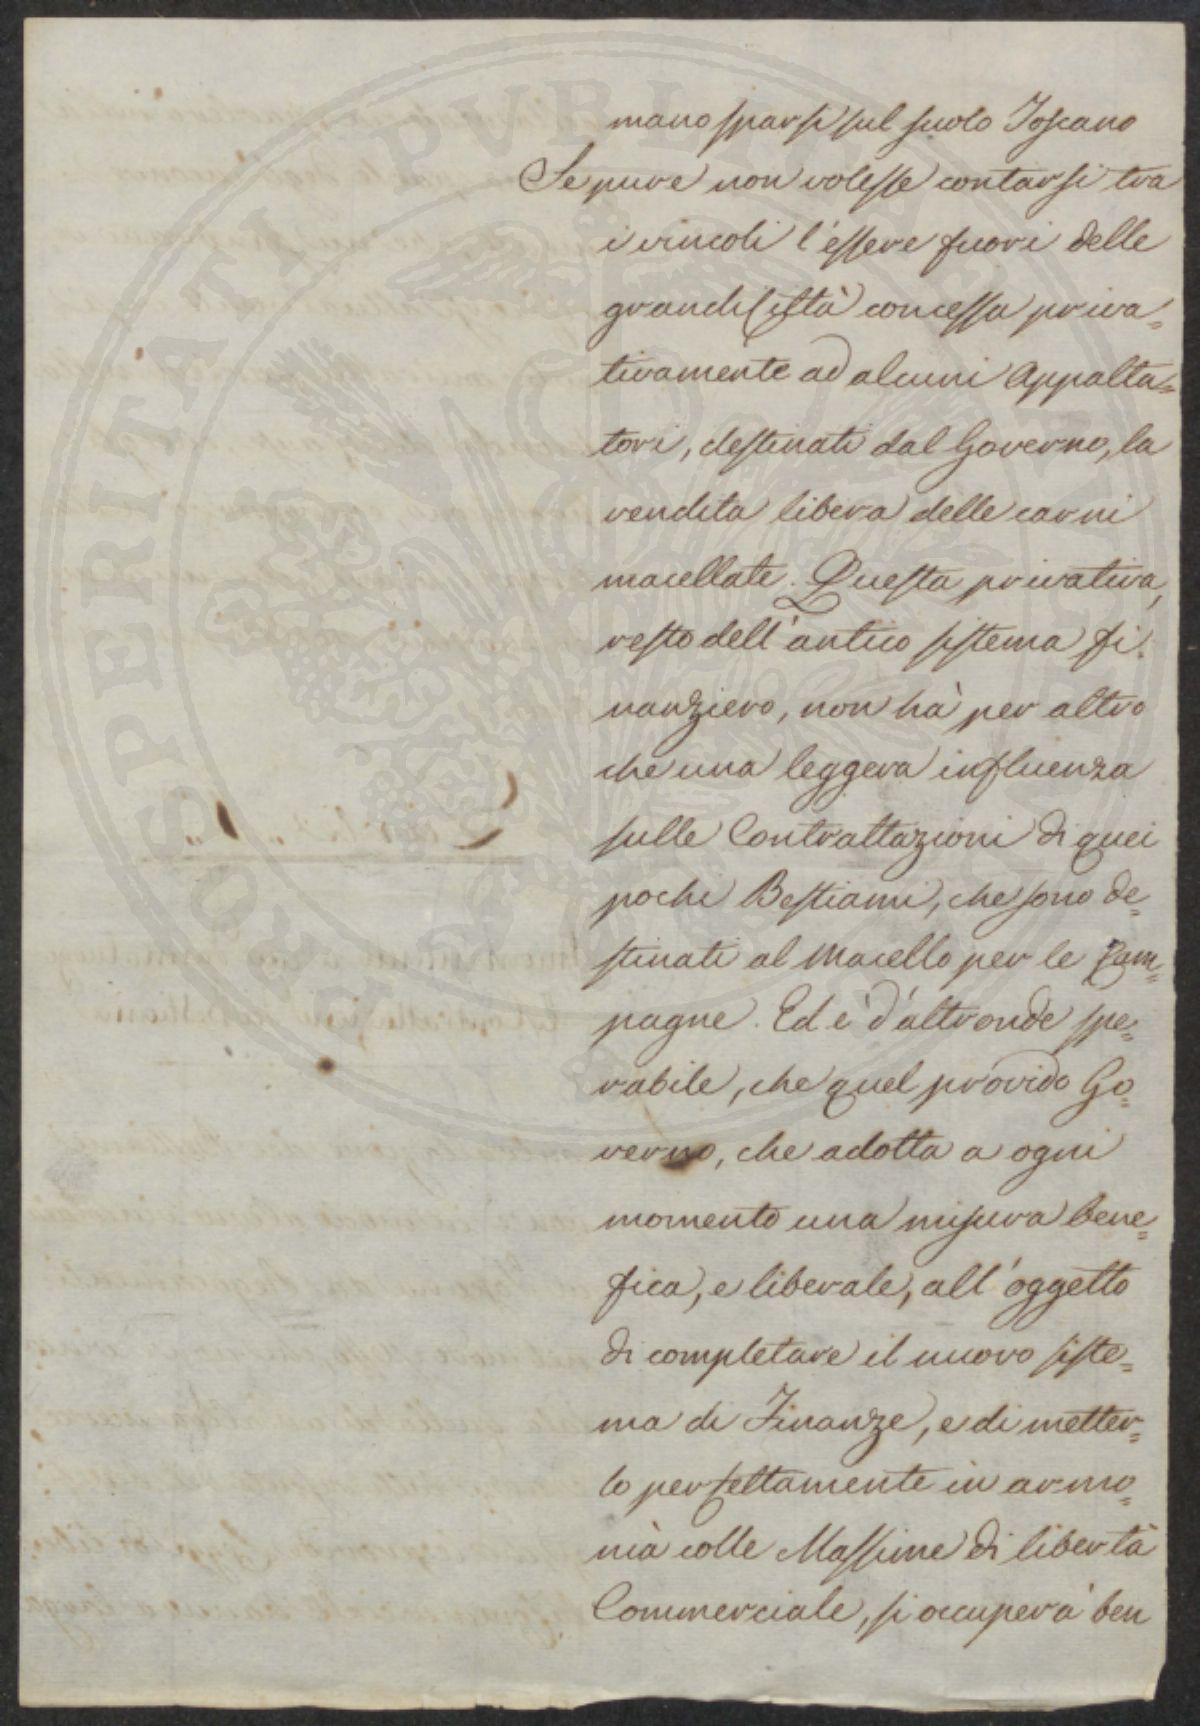 mano sparsi sul suolo Toscano
Se pure non volesse contarsi tra
i vincoli l'essere fuori delle
grandi Città concessa priva=
tivamente ad alcuni Appalta=
tori, destinati dal Governo, la
vendita libera delle carni
macellate. Questa privativa,
resto dell'antico sistema fi=
nanziero, non hà per altro
che una leggera influenza
sulle Contrattazioni di quei
pochi Bestiami, che sono de=
stinati al Macello per le Cam=
pagne. Ed è d'altronde spe=
rabile, che quel provido Go=
verno, che adotta a ogni
momento una misura bene=
fica, e liberale, all'oggetto
di completare il nuovo siste=
ma di Finanze, e di metter=
lo perfettamente in armo=
nia colle Massime di libertà
Commerciale, si occuperà ben
PROSPERITATI PVBLICAE